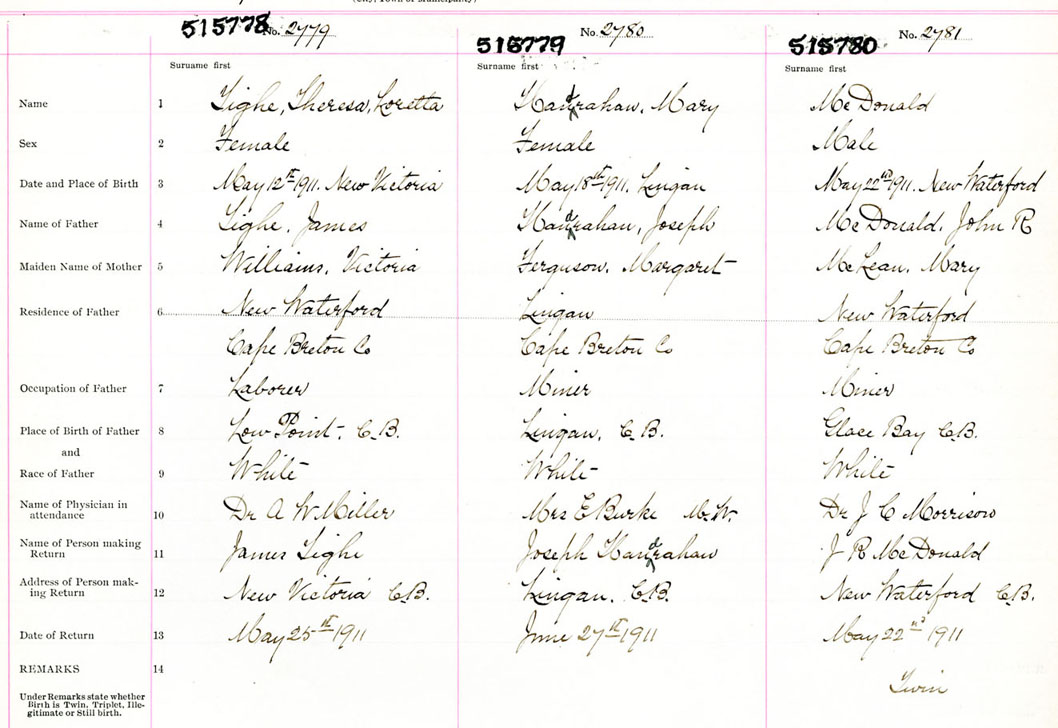 515778 No. 2779
515779 No. 2780
515780 No. 2781
Surname first Surname first Surname first
Name 1 Tighe, Theresa, Loretta Handrahan, Mary McDonald
Sex 2 Female Female Male
Date and Place of Birth 3 May 12th 1911. New Victoria May 18th 1911. Lingan May 22nd 1911. New Waterford
Name of Father 4 Tighe, James Handrahan, Joseph McDonald, John R
Maiden Name of Mother 5 Williams, Victoria Ferguson, Margaret McLean, Mary
Residence of Father 6 New Waterford Lingan New Waterford
Cape Breton Co Cape Breton Co Cape Breton Co
Occupation of Father 7 Laborer Miner Miner
Place of Birth of Father 8 Low Point, C.B. Lingan, C.B. Glace Bay C.B.
and
Race of Father 9 White White White
Name of Physician in
attendance 10 Dr A W Miller Mrs E Burke M.W. Dr J C Morrison
Name of Person making
Return 11 James Tighe Joseph Handrahan J R McDonald
Address of Person mak-
ing Return 12 New Victoria C.B. Lingan, C.B. New Waterford C.B.
Date of Return 13 May 25th 1911 June 27th 1911 May 22nd 1911
REMARKS 14
Twin
Under Remarks state whether
Birth is Twin, Triplet, Ille-
gitimate or Still birth.